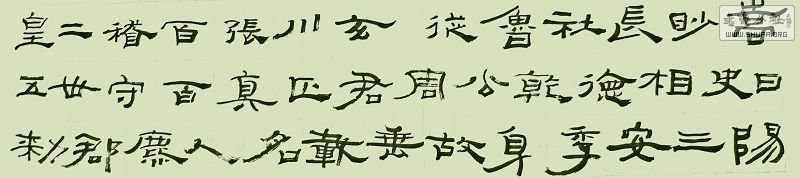 皇二稽百張川玄從魯社長眇
五世守百真正君周公乾德相史日
勑廉人名載垂故身季安三陽
WWW.SHUFA.ORG